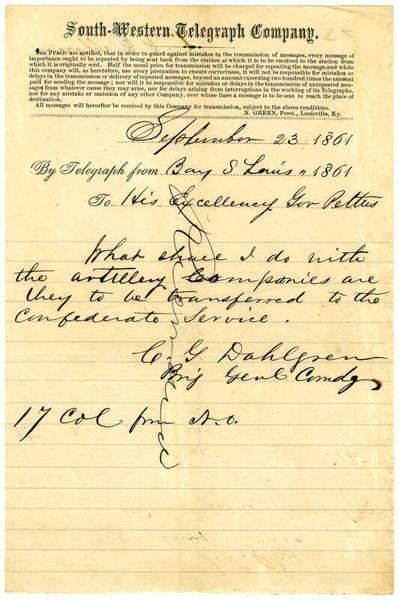 South-Western Telegraph Company.
THE PUBLIC are notified, that in order to guard against mistakes in the transmission of messages, every message of
importance ought to be repeated by being sent back from the station at which it is to be received to the station from
which it is originally sent. Half the usual price for transmission will be charged for repeating the message, and while
this company will, as heretofore, use every precaution to ensure correctness, it will not be responsible for mistakes or
delays in the transmission or delivery of repeated messages, beyond an amount exceeding two hundred times the amount
paid for sending the message; nor will it be responsible for mistakes or delays in the transmission of unrepeated messages
from whatever cause they may arise, nor for delays arising from interruptions in the working of its Telegraphs,
nor for any mistake or omission of any other Company, over whose lines a message is to be sent to reach the place of
destination.
All messages will hereafter be received by this Company for transmission, subject to the above conditions.
N. GREEN, Prest., Louisville, Ky.
September 23 1861
By Telegraph from Bay S Louis 1861
To His Excellency Gov Pettus
What shall I do with
the artillery Companies are
they to be transferred to the
Confederate Service.
C. G Dahlgren
Brig Genl Comdg
17 Col frm N.O.